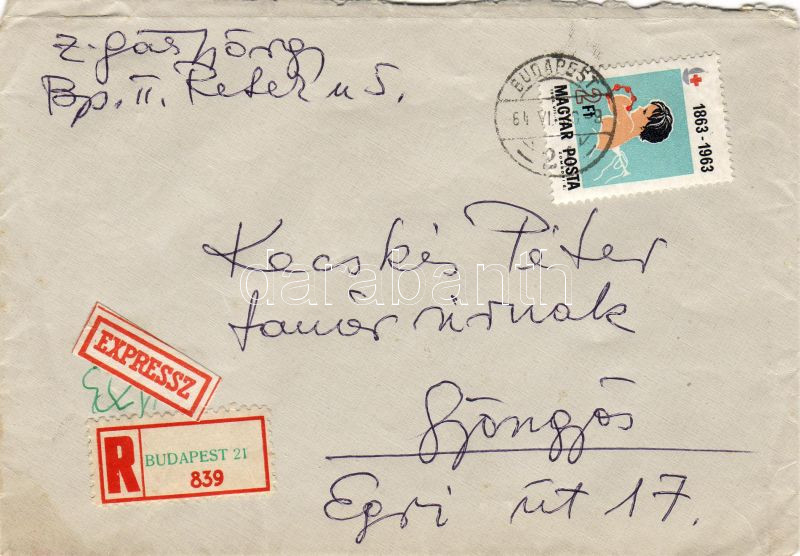 Z. Gáspár György
Bp. II. Retek u 5.
BUDAPEST
64 VI
2 Ft
MAGYAR POSTA
1863-1963
Kecskés Péter
tanár úrnak
Gyöngyös
Egri út 17.
EXPRESSZ
R
BUDAPEST 21
839
darabanth